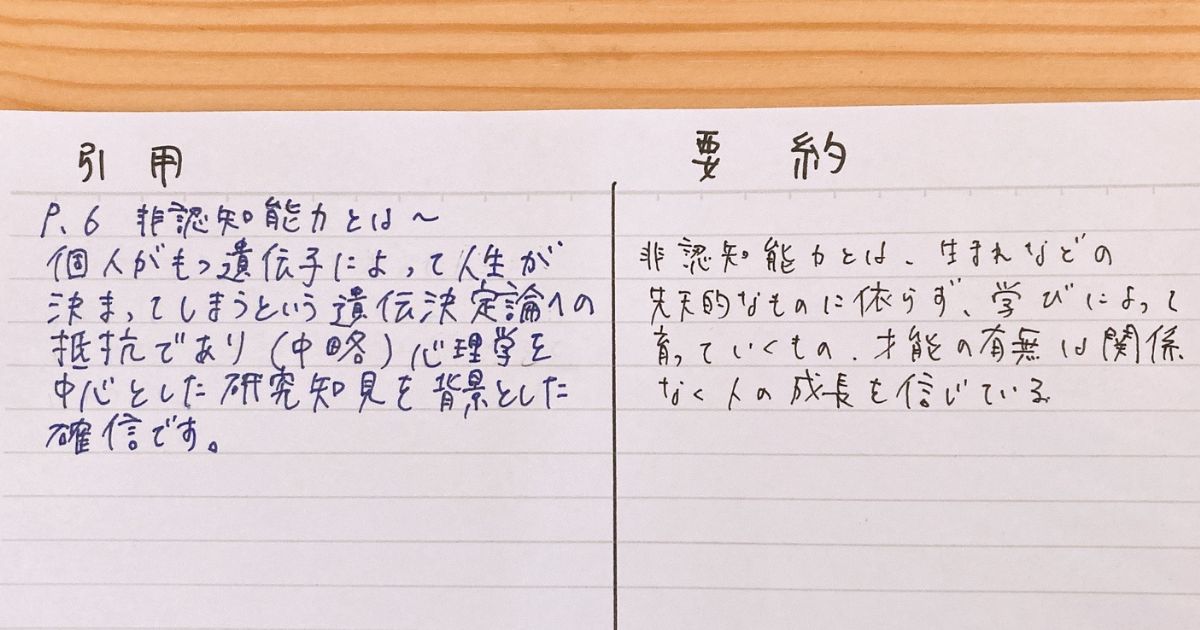 引用
P.6 非認知能力とは〜
個人がもつ遺伝子によって人生が
決まってしまうという遺伝決定論への
抵抗であり(中略)心理学を
中心とした研究知見を背景とした
確信です。
要約
非認知能力とは、生まれなどの
先天的なものに依らず、学びによって
育っていくもの。才能の有無は関係
なく人の成長を信じている